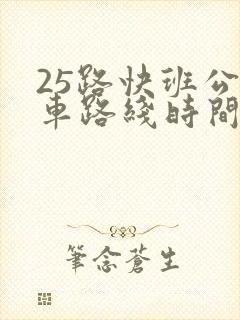 25路快班公
車路綫時間
筆念蒼生